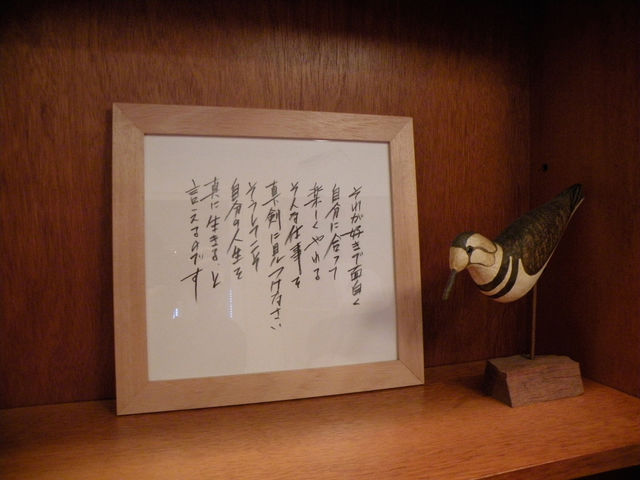 それが好きで面白く
自分に合って
楽しくやれる
そんな仕事を
真剣に見つけなさい
そうしてこそ
自分の人生を
真に生きる、と
言えるのです